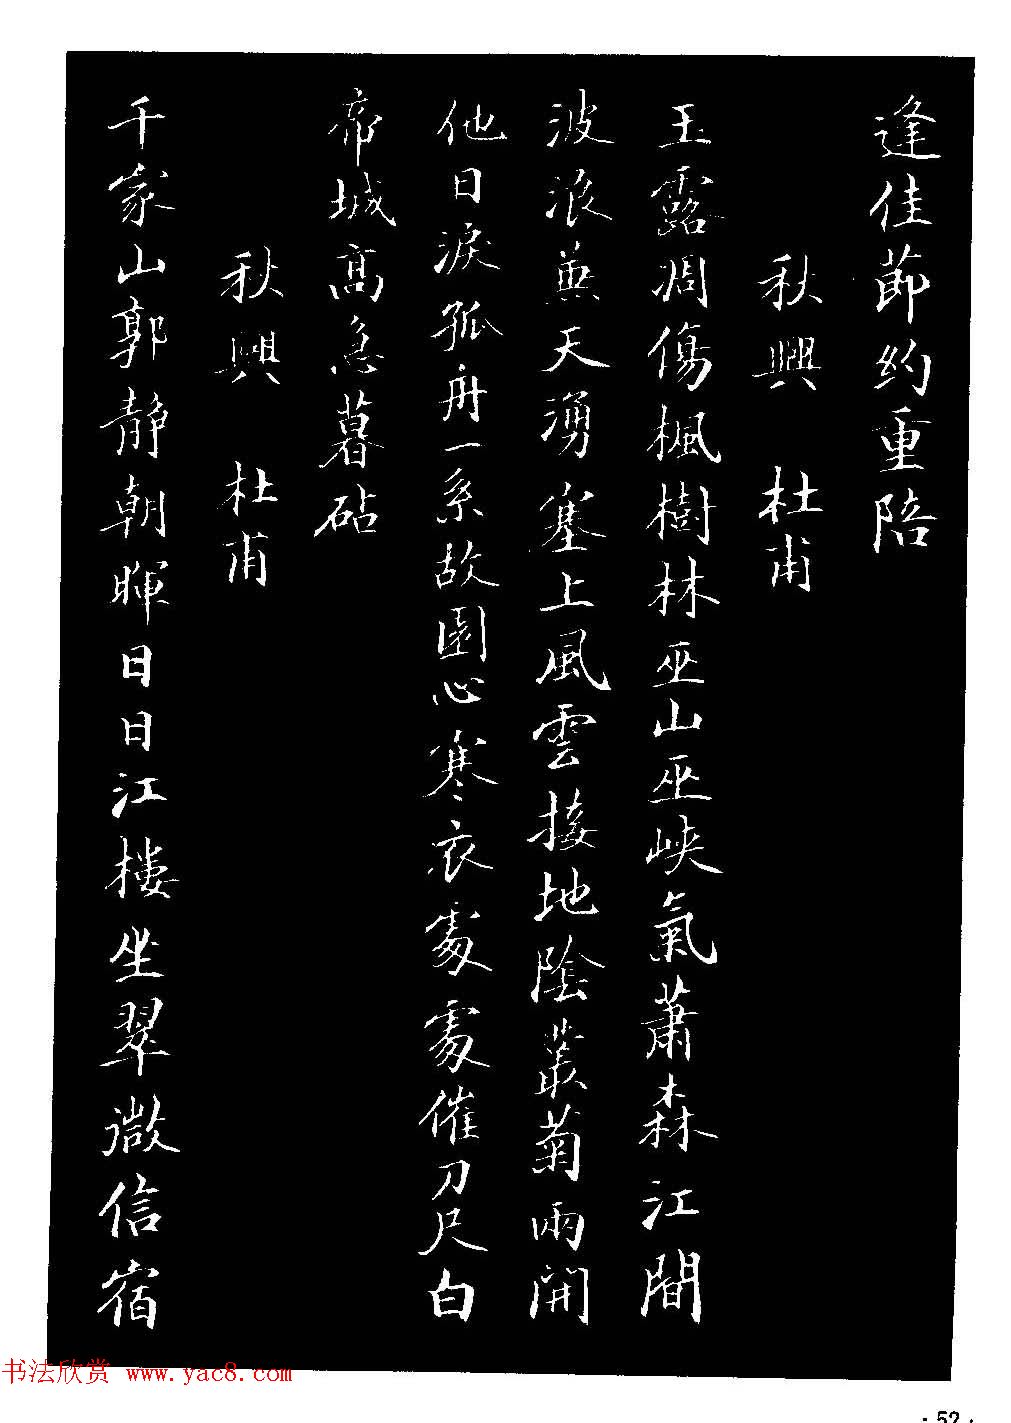 逢佳節約重陪
秋興 杜甫
玉露凋傷楓樹林巫山巫峽氣蕭森江間
波浪兼天湧塞上風雲接地陰叢菊兩開
他日淚孤舟一系故園心寒衣處處催刀尺白
帝城高急暮砧
秋興 杜甫
千家山郭靜朝暉日日江樓坐翠微信宿
书法欣赏 www.yac8.com
· 52 ·